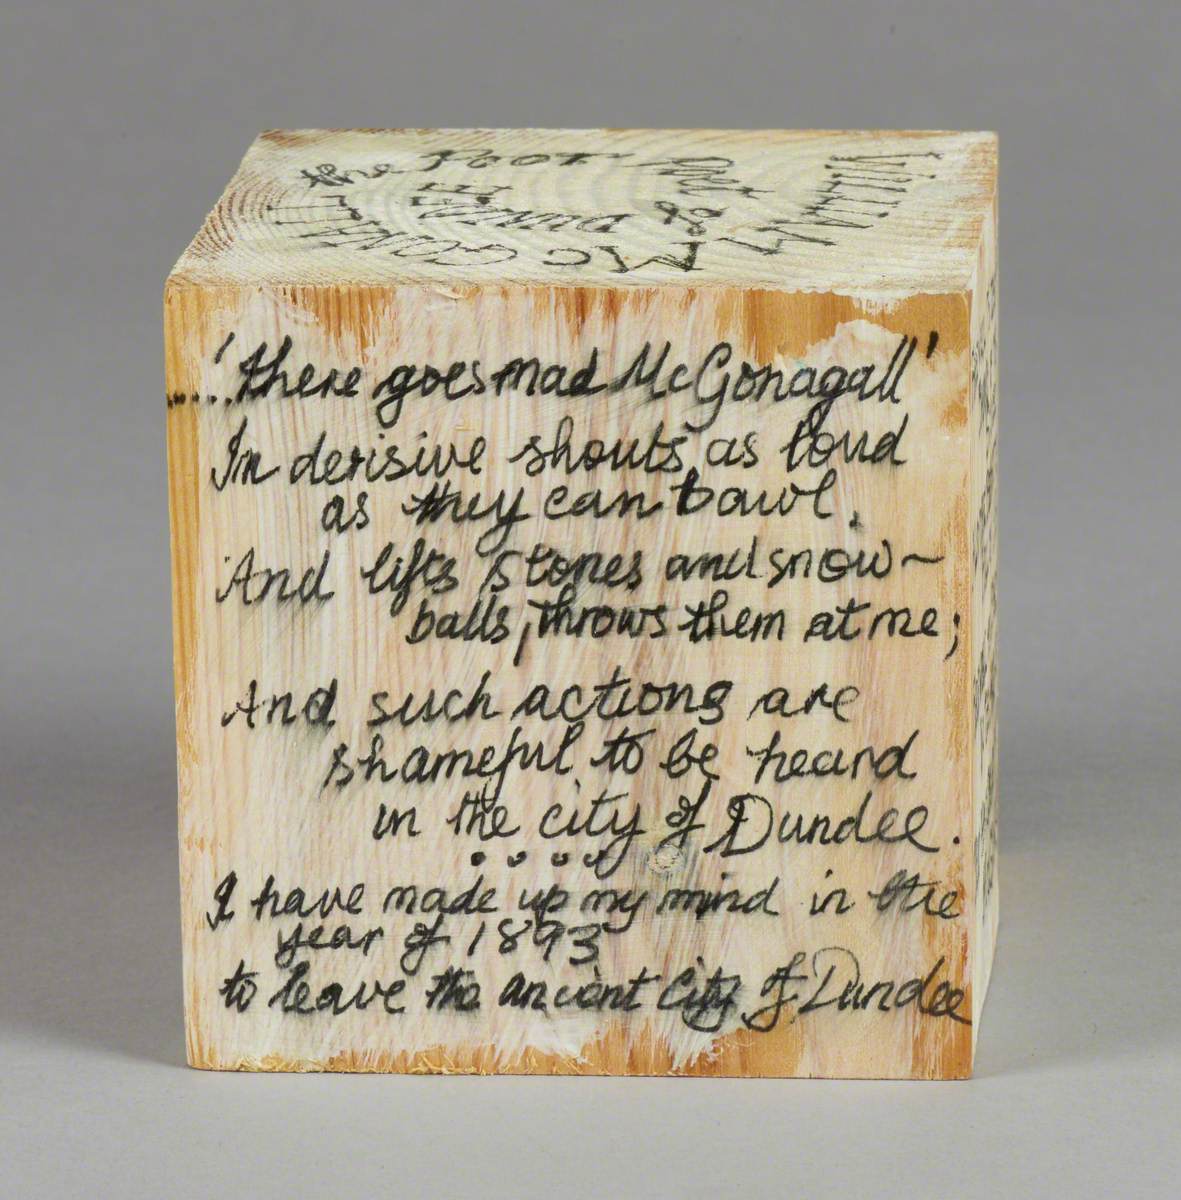 WILLIAM
Mc GONAGALL
the Poor Poet
of DUNDEE
....'there goes mad McGonagall'
In derisive shouts, as loud
as they can bawl.
And lifts stones and snow~
balls, throws them at me;
And such actions are
shameful to be heard
in the city of Dundee.
....
I have made up my mind in the
year of 1893
to leave the ancient city of Dundee